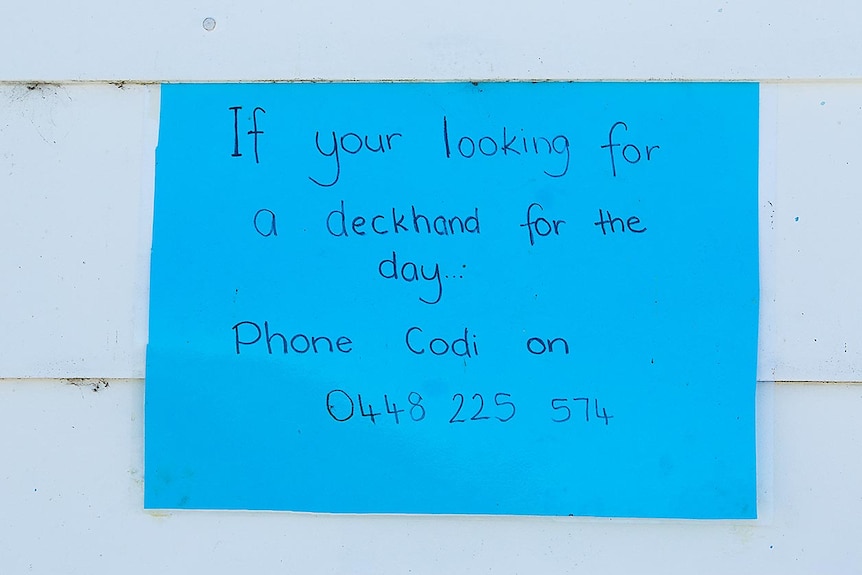 If your looking for
a deckhand for the
day...
Phone Codi on
0448 225 574